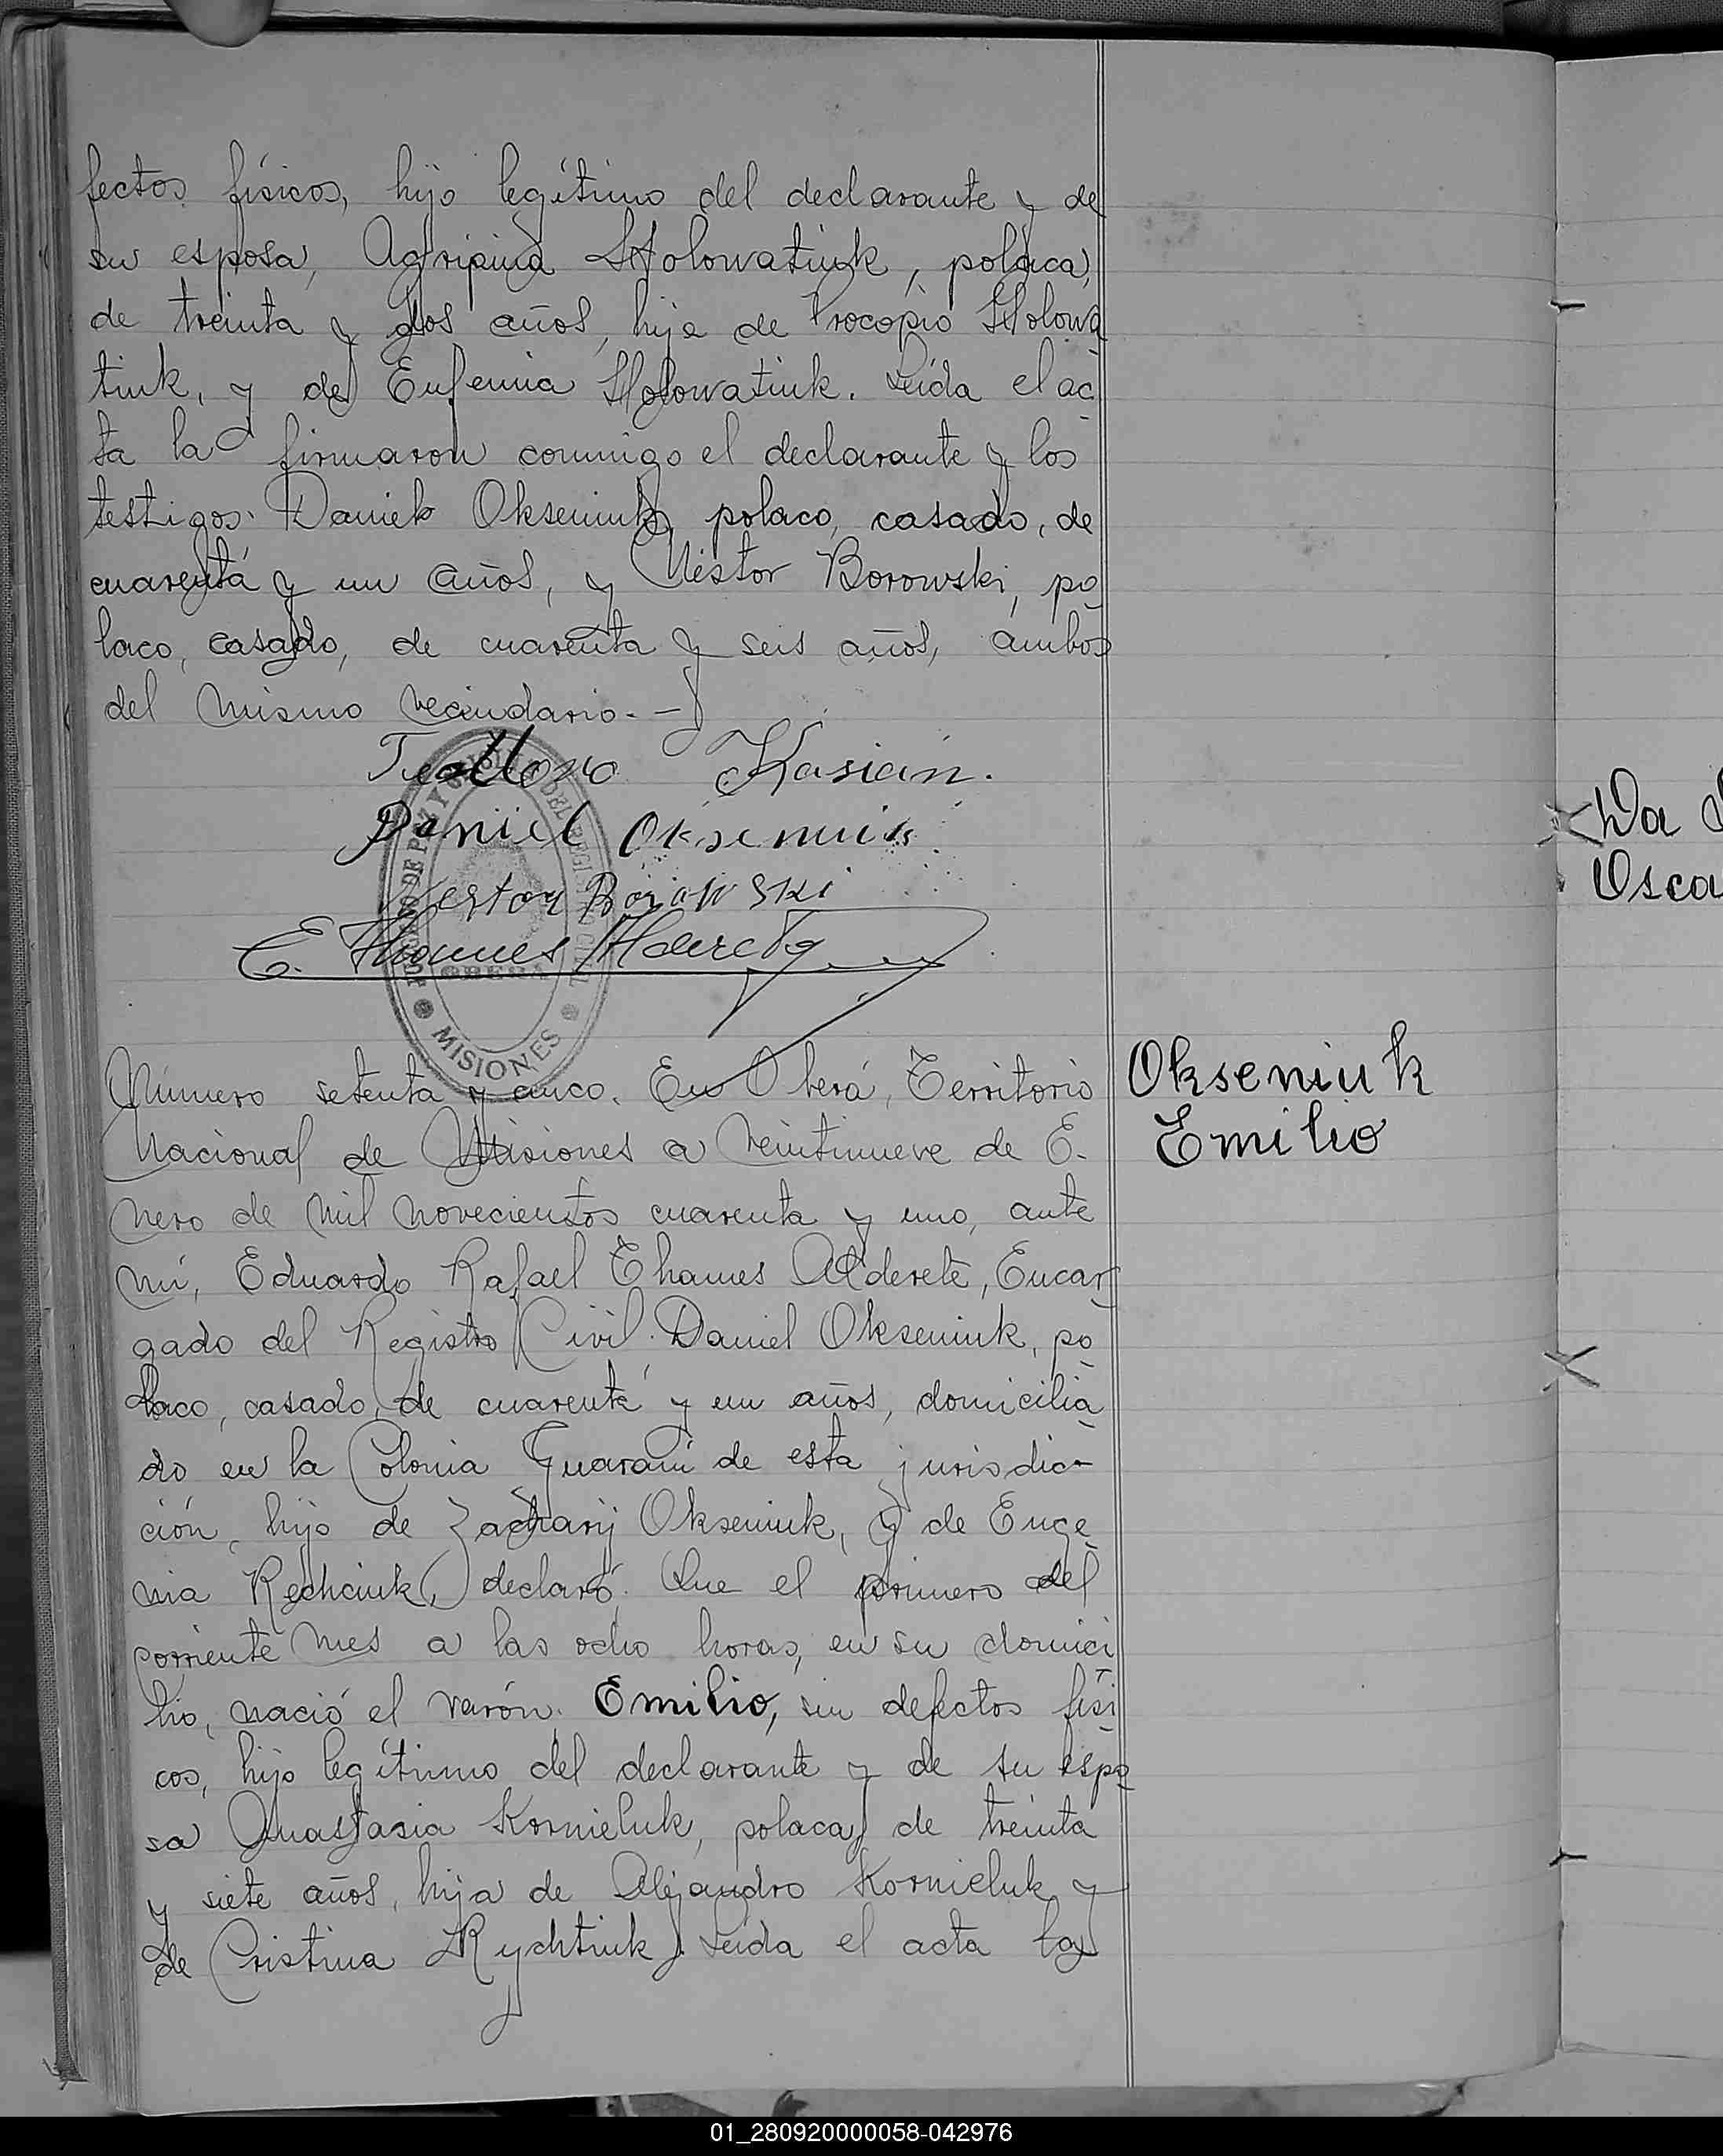 fectos físicos, hijo legítimo del declarante y de
su esposa, Agripina Holowatiuk, polaca,
de treinta y dos años, hija de Procopio Holowa
tiuk, y de Eufemia Holowatiuk. Leída el ac
ta la firmaron conmigo el declarante y los
testigos: Daniel Okseniuk, polaco, casado, de
cuarenta y un años, y Néstor Borowski, po
laco, casado, de cuarenta y seis años, ambos
del mismo vecindario.-
Kasian.
Daniel Okseniuk
Nestor Borowski
E. Thames Alderete
MISIONES
Número setenta y cinco. En Oberá, Territorio
Nacional de Misiones a veintinueve de E-
nero de mil novecientos cuarenta y uno, ante
mí, Eduardo Rafael Thames Alderete, Encar
gado del Registro Civil. Daniel Okseniuk, po
laco, casado, de cuarenta y un años, domicilia
do en la Colonia Guaraní de esta jurisdic-
ción, hijo de Zacharij Okseniuk, y de Euge
nia Rechciuk, declaró: Que el primero del
corriente mes a las ocho horas, en su domici
lio, nació el varón: Emilio, sin defectos físi
cos, hijo legítimo del declarante y de su espo
sa Anastasia Kornieluk, polaca, de treinta
y siete años, hija de Alejandro Kornieluk y
de Cristina Rychtiuk. Leída el acta la
Okseniuk
Emilio
Da
Osca
01_280920000058-042976